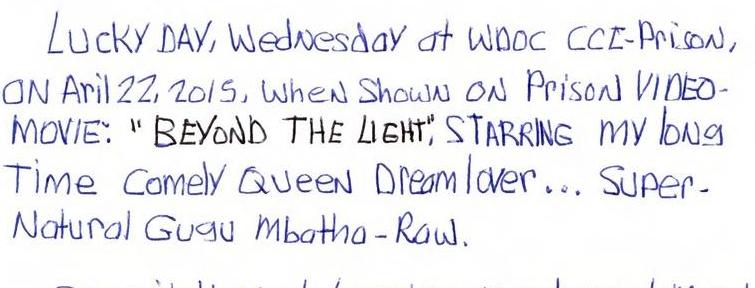 Lucky DAY, Wednesday at WDOC CCI-Prison,
ON Aril 22, 2015, When Shown ON Prison VIDEO-
MOVIE: "BEYOND THE LIGHT", STARRING my long
Time Comely Queen Dreamlover... Super-
Natural Gugu Mbatha-Raw.